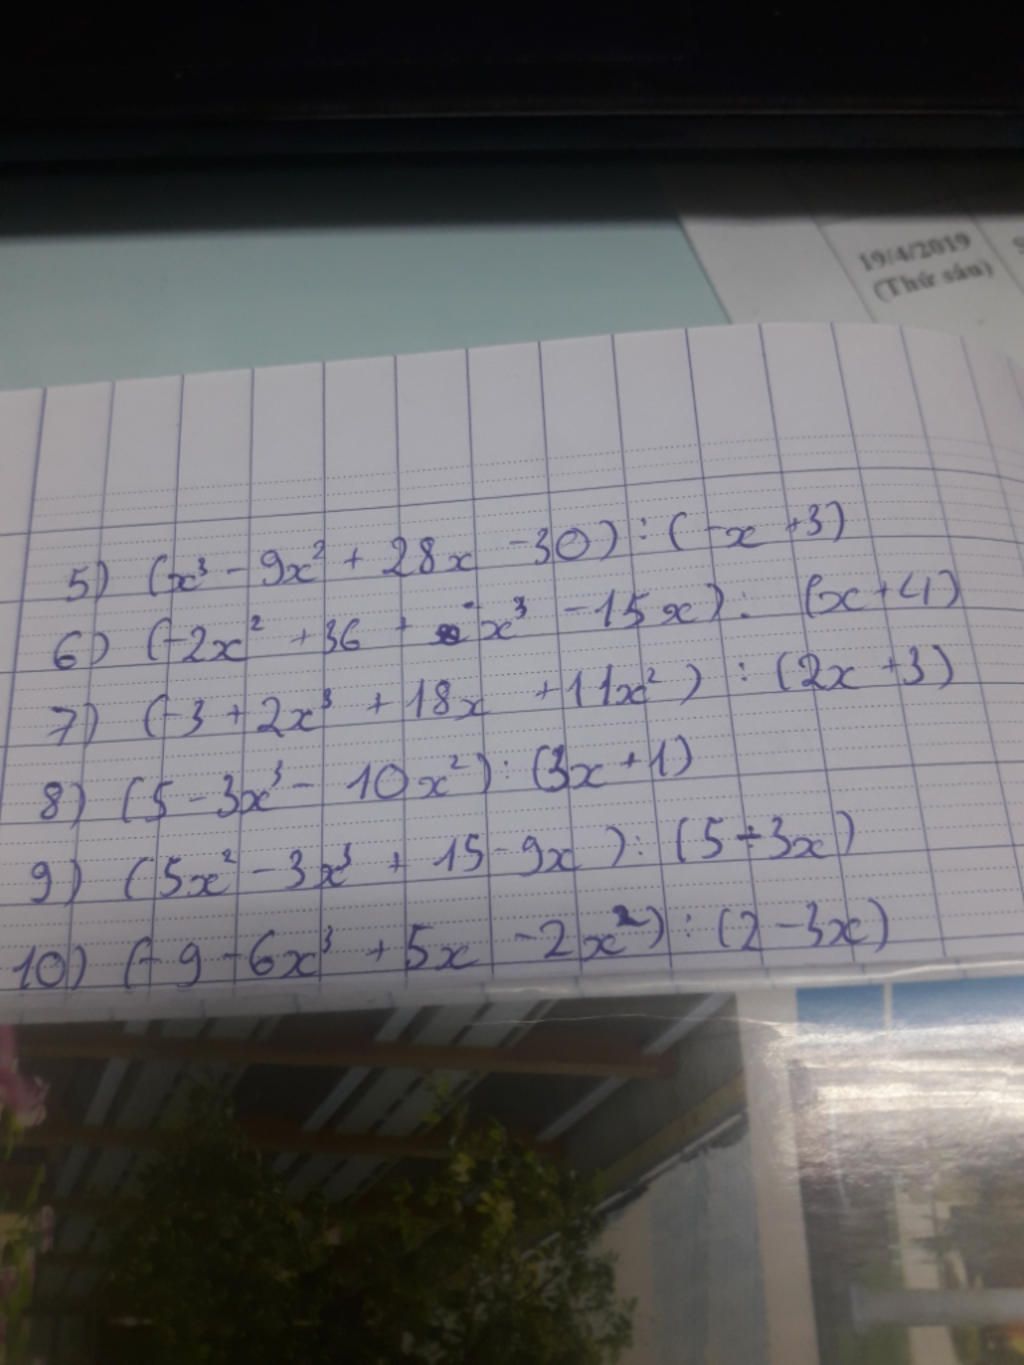 19/4/2019
(Thứ sáu)
5) (x³ - 9x² + 28x - 30) : (-x + 3)
6) (-2x² + 36 + x³ - 15x) : (x + 4)
7) (-3 + 2x³ + 18x + 11x²) : (2x + 3)
8) (5 - 3x³ - 10x²) : (3x + 1)
9) (5x² - 3x³ + 15 - 9x) : (5 - 3x)
10) (-9 - 6x³ + 5x - 2x²) : (2 - 3x)